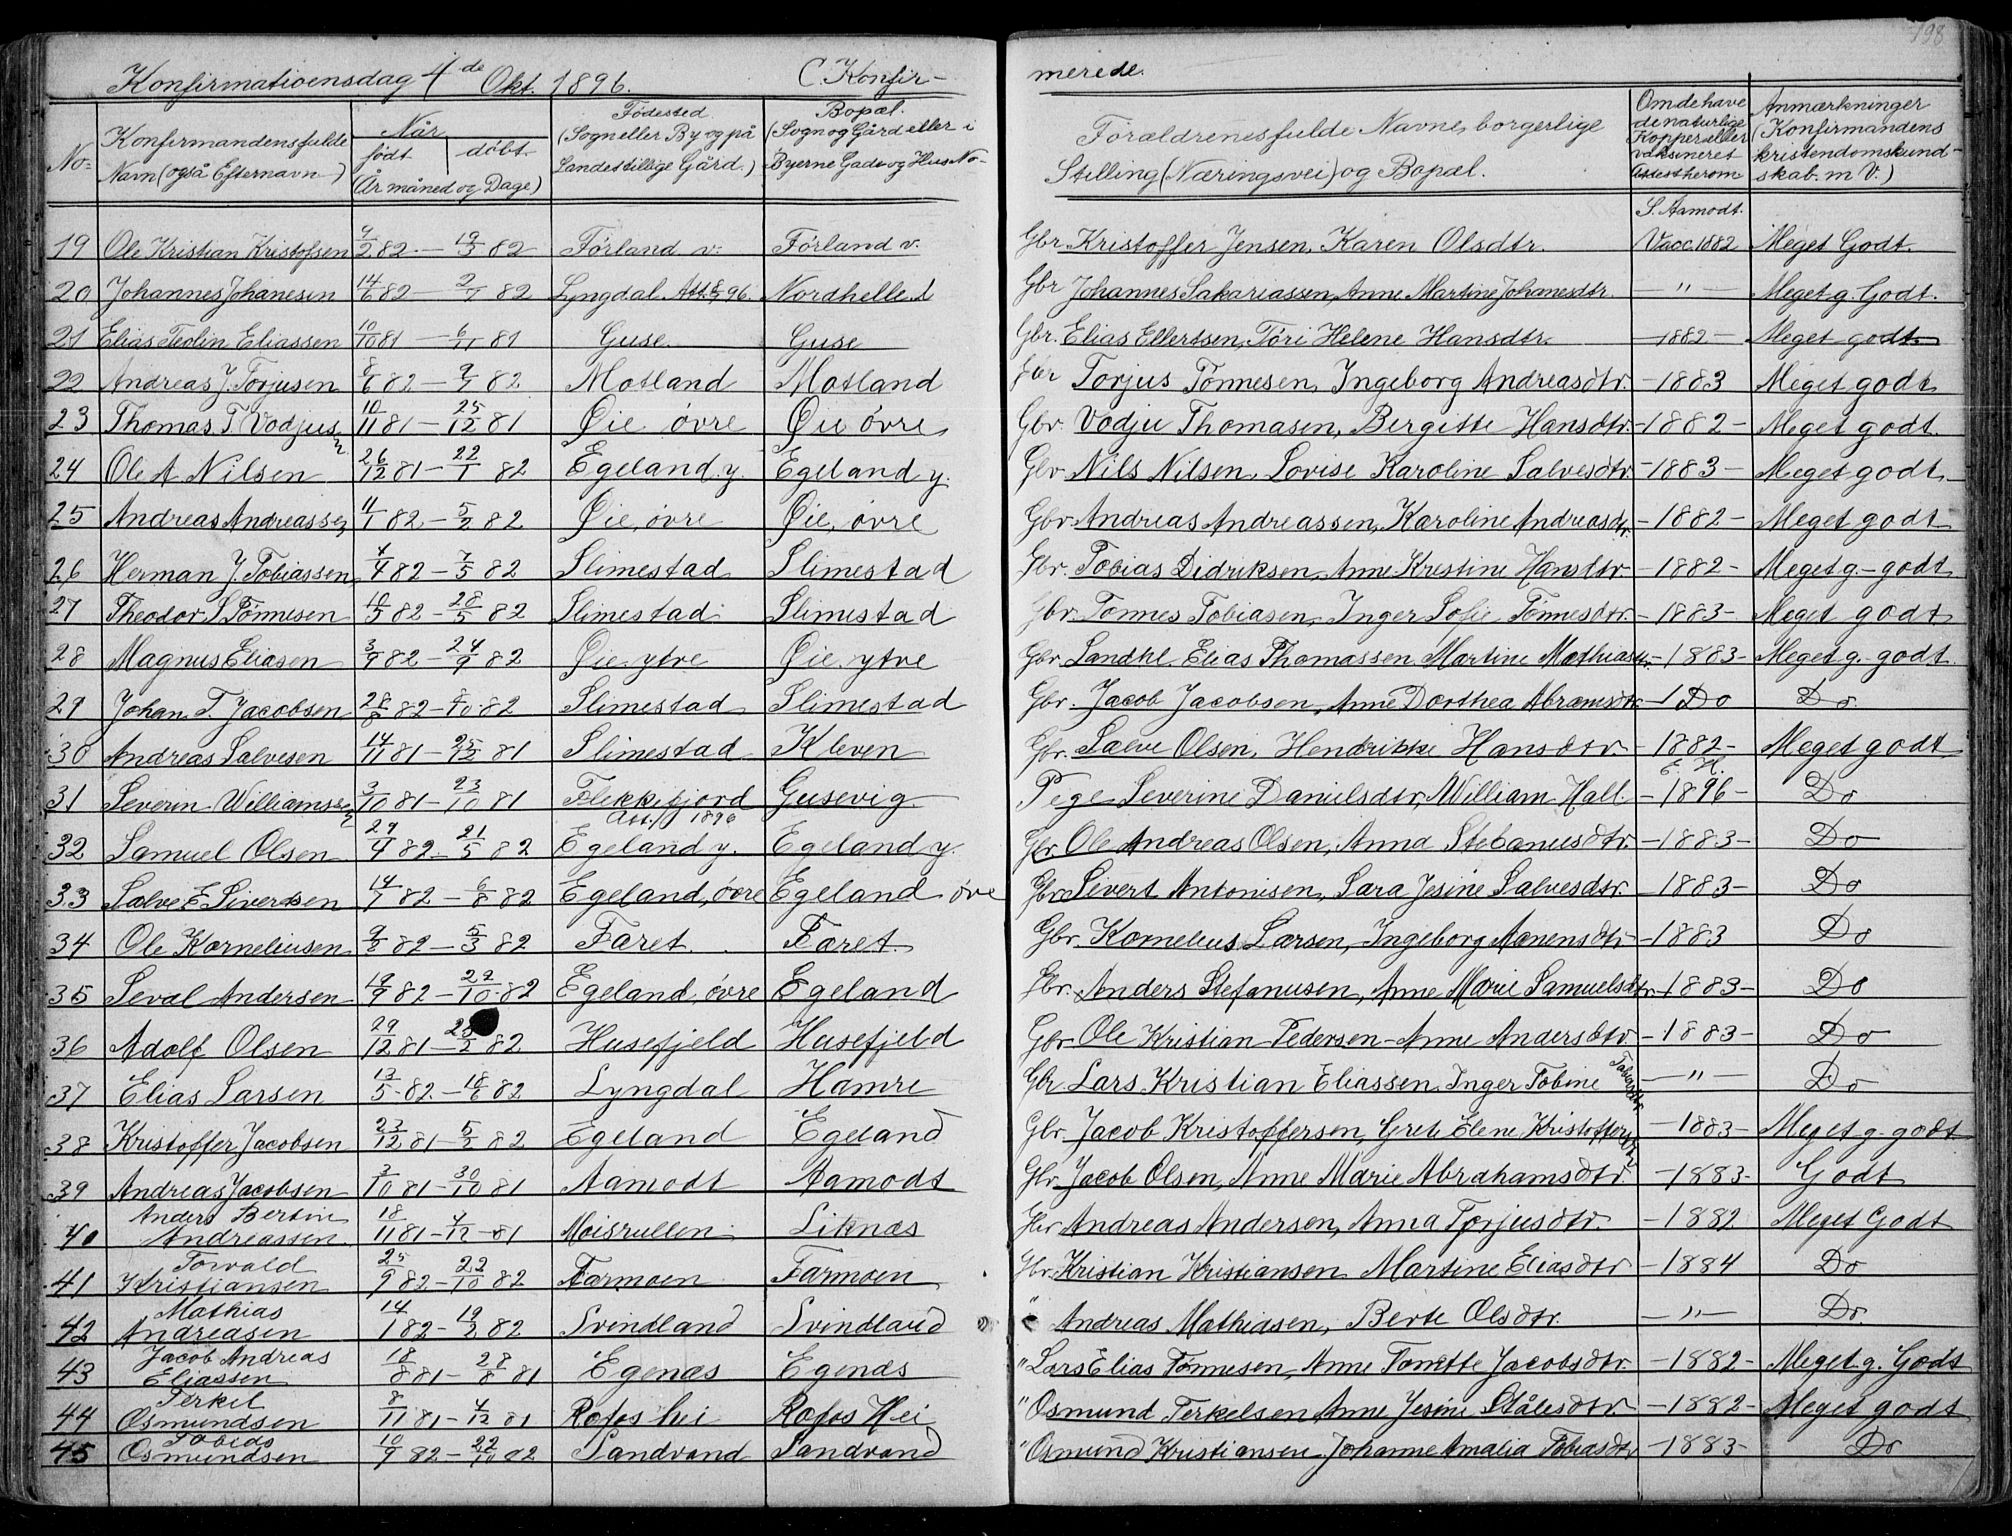 198
Konfirmationsdag 4de Okt. 1896. C. Konfir-
merede.
No. Konfirmandens fulde Navn (også Efternavn) Når født døbt (År måned og Dage) Fødested (Sogn eller By og på Landet tillige Gård.) Bopæl. (Sogn og Gård eller i Byerne Gade og Hus No- Forældrenes fulde Navne, borgerlige Stilling (Næringsvei) og Bopæl. Om de have de naturlige Kopper eller vaksineret Attest herom Anmærkninger (Konfirmandens kristendomskund- skab. m V.)
S. Aamodt.
19 Ole Kristian Kristofsen 9/2 82 - 19/3 82 Førland v. Førland v. Gbr. Kristoffer Jensen, Karen Olsdtr. Vacc. 1882 Meget Godt.
20 Johannes Johanesen 14/6 82 - 2/7 82 Lyngdal Nordhelle Gbr Johannes Sakariassen, Anne Martine Johanesdtr. - " - Meget g. Godt.
21 Elias Teolin Eliassen 10/10 81 - 6/11 81 Guse Guse Gbr. Elias Ellertsen, Töri Helene Hansdtr. -1882- Meget godt.
22 Andreas J. Torjusen 8/6 82 - 9/7 82 Motland Motland Torjus Tönnesen, Ingeborg Andreasdtr. -1883 Meget godt
23 Thomas T Vodjusen 10/11 81 - 25/12 81 Øie övre Øie övre Gbr. Vodju Thomasen, Bergitte Hansdtr. -1882- Meget godt.
24 Ole A Nilsen 26/12 81 - 22/1 82 Egeland y. Egeland y. Gbr. Nils Nilsen, Lovise Karoline Salvesdtr. -1883- Meget godt.
25 Andreas Andreassen 4/1 82 - 5/2 82 Øie, övre Øie, övre Gbr. Andreas Andreassen, Karoline Andreasdtr. -1882- Meget godt
26 Herman J. Tobiassen 4/4 82 - 7/5 82 Slimestad Slimestad Gbr. Tobias Didriksen, Anne Kristine Hansdtr. -1882- Meget g. godt
27 Theodor S Tönnesen 10/5 82 - 28/5 82 Slimestad Slimestad Gbr. Tonnes Tobiasen, Inger Sofie Tönnesdtr. -1883- Meget godt
28 Magnus Eliasen 3/9 82 - 24/9 82 Øie ytre Øie ytre Gbr. Landhl. Elias Thomassen Martine Mathiasdtr. -1883- Meget g. godt.
29 Johan T. Jacobsen 28/8 82 - 8/10 82 Slimestad Slimestad Gbr. Jacob Jacobsen, Anne Dorthea Abramsdtr. - Do Do
30 Andreas Salvesen 14/11 81 - 25/12 81 Slimestad Kleven Gbr. Salve Olsen, Hendrikke Hansdtr. -1882- Meget godt
31 Severin Williamssen 3/10 81 - 23/10 81 Flekkefjord Att. 1896 Gusevig Pige Severine Danielsdtr, William Hall. E. H. -1896- Do
32 Samuel Olsen 29/4 82 - 21/5 82 Egeland y. Egeland y. Gbr. Ole Andreas Olsen, Anna Stefanusdtr. -1883- Do
33 Salve E Siverdsen 14/7 82 - 6/8 82 Egeland, övre Egeland övre Gbr Sivert Antonisen, Sara Jesine Salvesdtr. -1883- Do
34 Ole Korneliusen 9/2 82 - 5/3 82 Faret. Faret. Gbr. Kornelius Larsen, Ingeborg Aanensdtr -1883 Do
35 Seval Andersen 19/9 82 - 29/10 82 Egeland, övre Egeland Gbr. Anders Stefanusen, Anne Marie Samuelsdtr -1883- Do
36 Adolf Olsen 29/12 81 - 82 Husefjeld Husefjeld Gbr. Ole Kristian Pedersen - Anne Andersdtr. -1883- Do
37 Elias Larsen 13/5 82 - 18/6 82 Lyngdal Hamre Gbr Lars Kristian Eliassen Inger Tobine Tobiasdtr - " - Do
38 Kristoffer Jacobsen 23/12 81 - 5/2 82 Egeland Egeland Gbr. Jacob Kristoffersen, Grete Elene Kristoffersdtr -1883- Meget g. godt
39 Andreas Jacobsen 3/10 81 - 30/10 81 Aamodt Aamodt Gbr Jacob Olsen, Anne Marie Abrahamsdtr. -1883- Godt
40 Anders Bertin Andreassen 18/11 81 - 4/12 - 81 Moisrullen Liknæs Andreas Andersen, Anna Torjusdtr -1882 Meget Godt
41 Torvald Kristiansen 25/9 82 - 22/10 82 Farmoen Farmoen Gbr. Kristian Kristiansen Martine Eliasdtr -1884 Do
42 Mathias Andreasen 14/1 82 - 19/2 82 Svindland Svindland " Andreas Mathiasen, Berte Olsdtr. - " - Do.
43 Jacob Andreas Eliassen 18/8 81 - 28/8 81 Egenæs Egenæs " Lars Elias Tönnesen, Anne Tonette Jacobsdtr. -1882- Meget g. Godt
44 Terkel Osmundsen 8/11 81 - 4/12 81 Rafos hei Rafos Hei " Osmund Terkelsen Anne Jesine Ståle­sdtr. -1882- Meget godt
45 Tobias Osmundsen 10/9 82 - 22/10 82 Sandvand Sandvand " Osmund Kristiansen Johanne Amalia Tobiasdtr -1883- Do